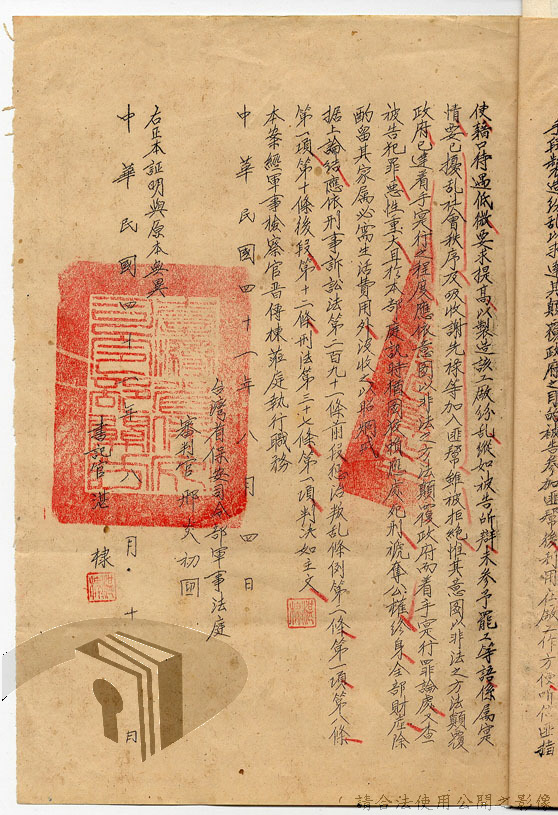 手段製造紛乱以達其顛覆政府之目的被告參加匪幫後利用在廠工作方便听信匪指
使藉口待遇低微要求提高以製造該工廠紛乱縱如被告所辯未參予罷工等語係属實
情要已擾乱社會秩序及吸收謝先祿等加入匪幫雖被拒絕惟其意圖以非法之方法顛覆
政府已達着手实行之程度應依意圖以非法之方法顛覆政府而着手实行罪論處又查
被告犯罪惡性重大且於本部審訊時頑固狡賴應處死刑褫奪公權終身全部財產除
酌留其家属必需生活費用外沒收之以昭烱戒
据上論結應依刑事訴訟法第二百九十一條前段懲治叛乱條例第二條第一項第八條
第一項第十條後段第十二條刑法第三十七條第一項判決如主文
本案經軍事檢察官晋傳棟蒞庭執行職務
中華民國四十一年八月四日
台灣省保安司令部軍事法庭
審判官 邢炎初
右正本証明與原本無異
中華民國四十一年八月十 日
書記官 湛棣
請合法使用公開之影像